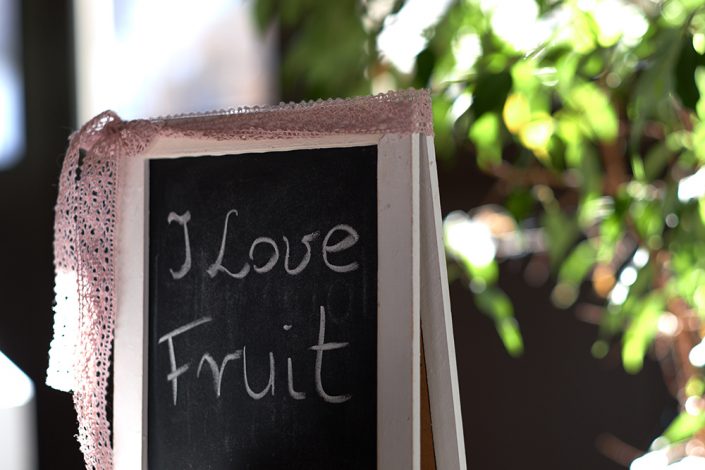 I Love
Fruit